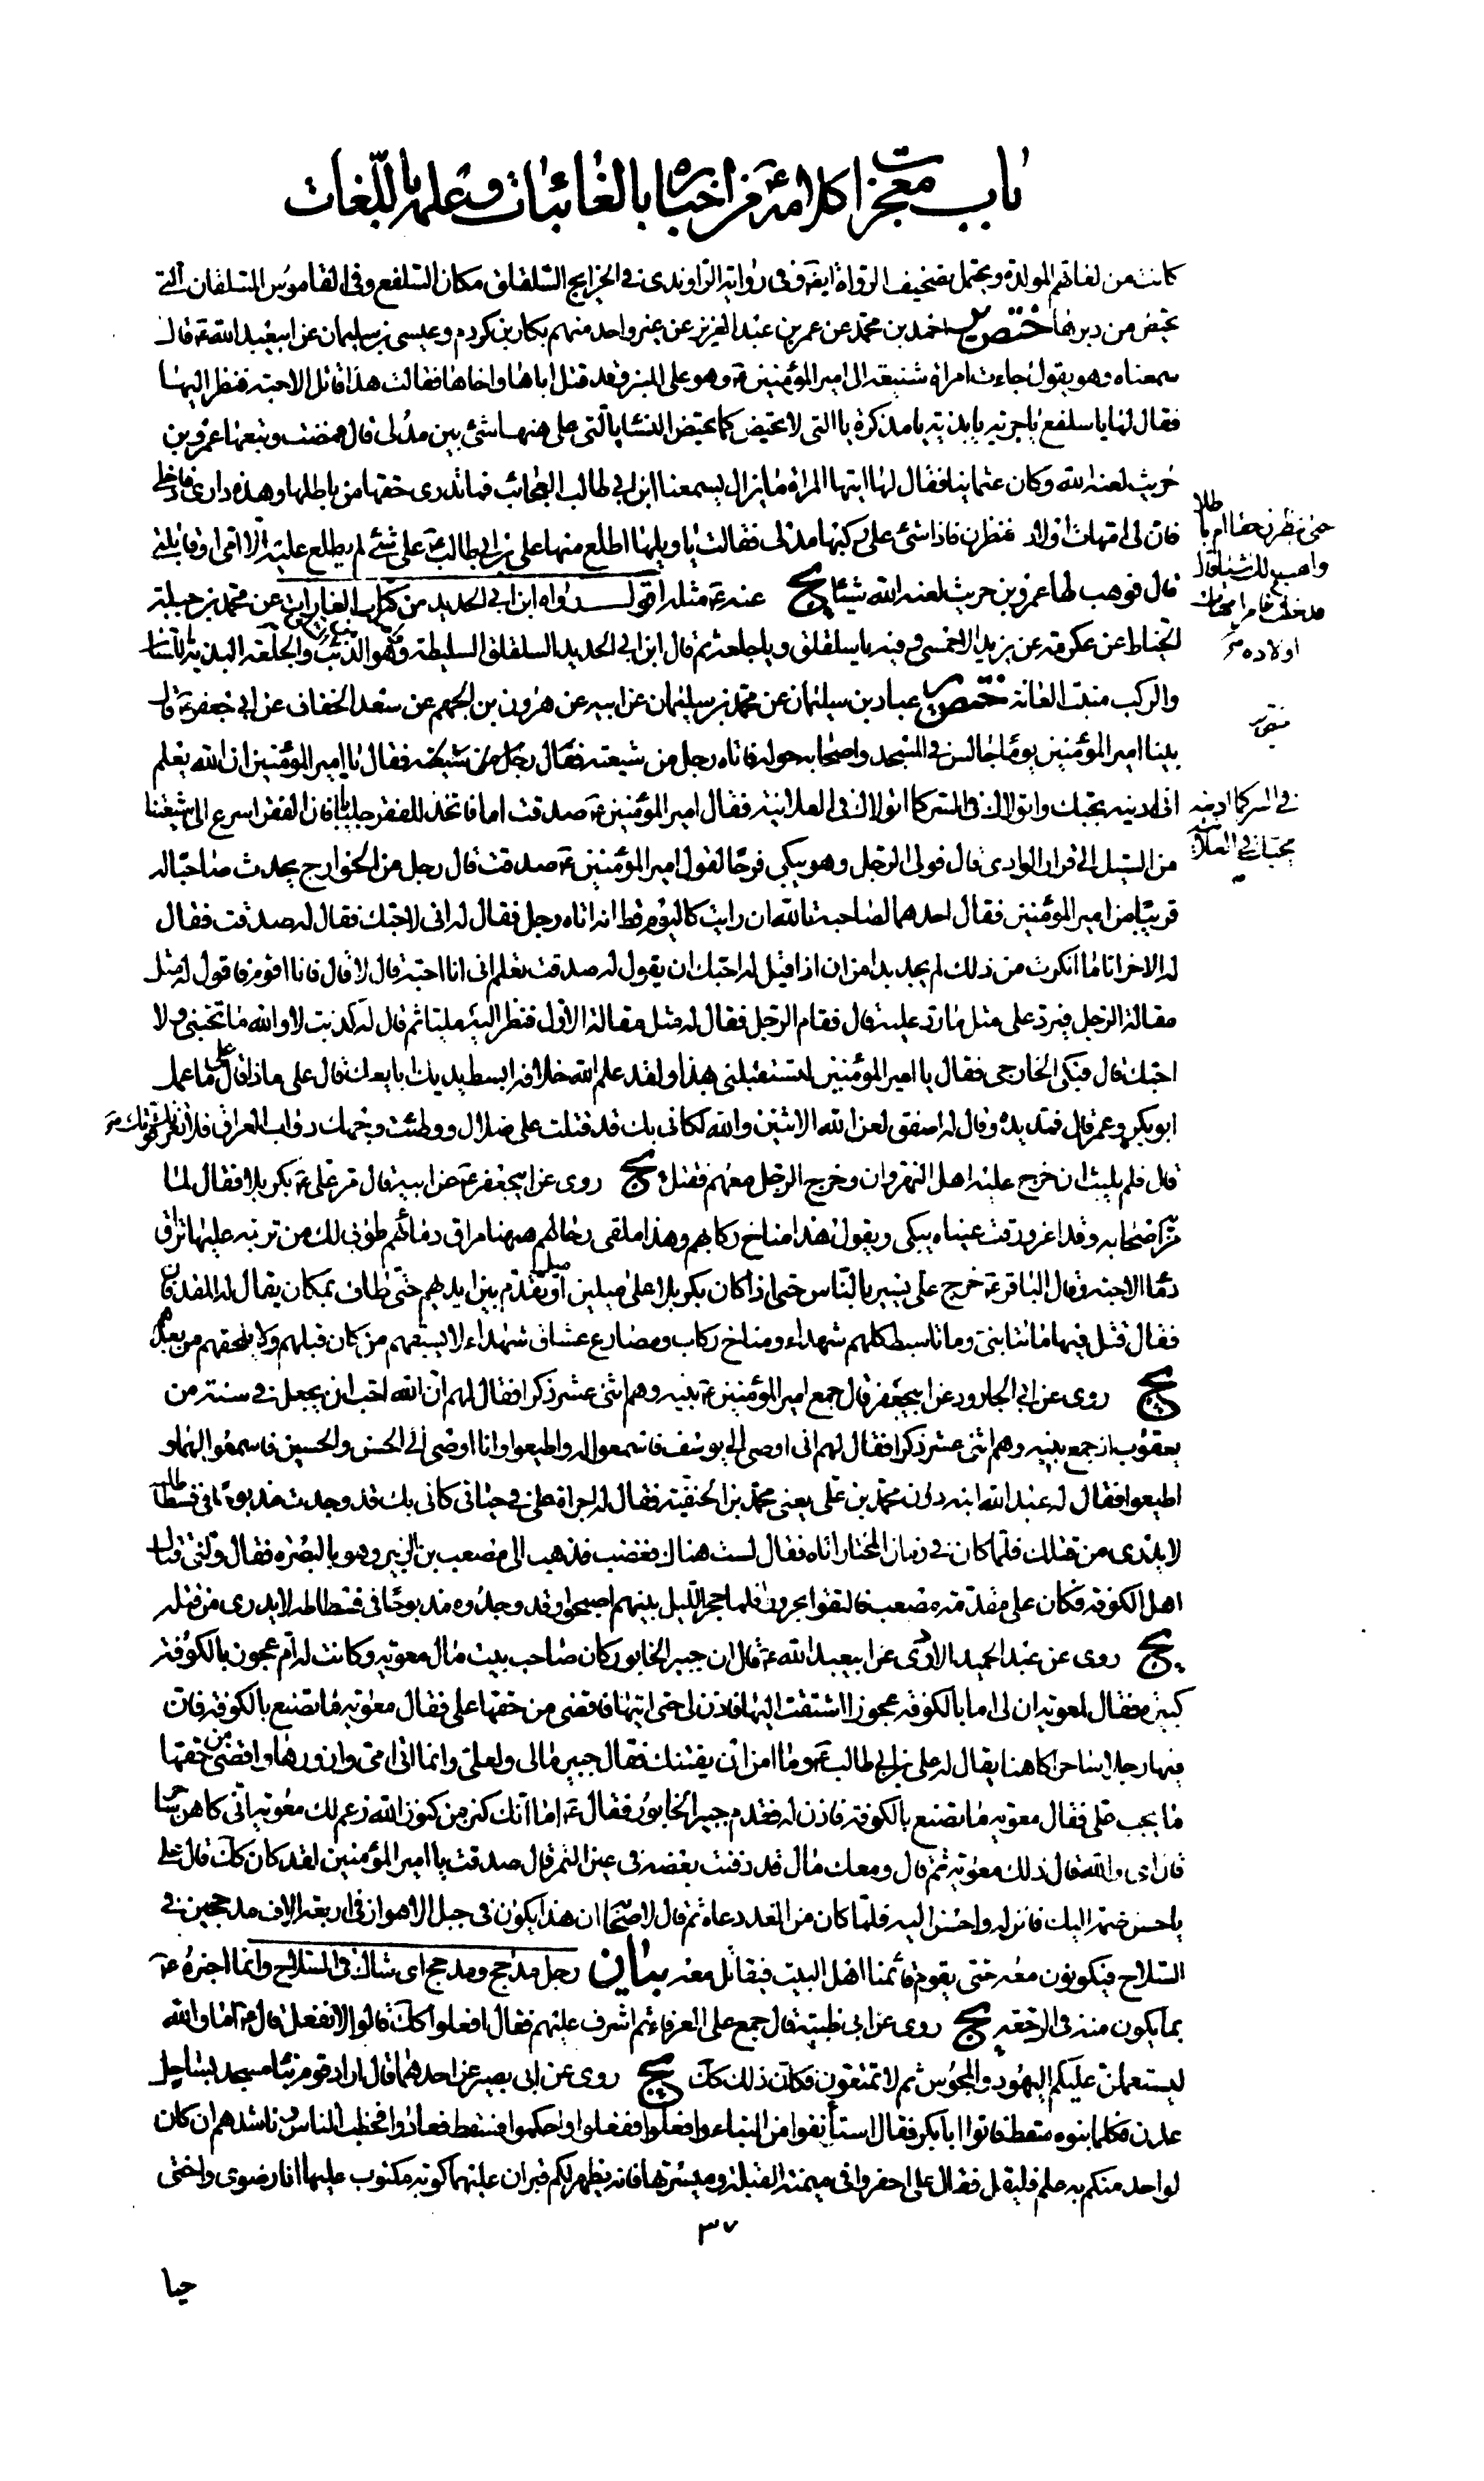 باب معجزات كلامه ع من اخباره بالغائبات و علمه باللغات
كانت من لغاتهم المولدة ويحتمل تصحيف الرواة ايضا وفي رواية الراوندى في الخرايج السلقلق مكان السلفع وفي القاموس السلقان التى
تحيض من دبرها ختص احمد بن محمد عن عمر بن عبد العزيز عن غير واحد منهم بكار بن كردم وعيسى بن سليمان عن ابيعبد الله ع قال
سمعناه وهو يقول جاءت امراة شنيعة الى امير المؤمنين ع وهو على المنبر وقد قتل اباها واخاها فقالت هذا قاتل الاحبة فنظر اليها
فقال لها يا سلفع يا جرية يا بذية يا مذكرة يا التى لا تحيض كما تحيض النساء يا التى على هنها شئ بين مدلى قال فمضت وتبعها عمرو بن
حريث لعنه الله وكان عثمانيا فقال لها ايتها المراة ما يزال يسمعنا ابن ابي طالب العجائب فما ندرى حقها من باطلها وهذه دارى فادخلى
فان لى امهات اولاد فنظرن فاذا شئ على ركبها مدلى فقالت يا ويلها اطلع منها على بن ابي طالب ع على شئ لم يطلع عليه الا امى او قابلتى
قال فوهب لها عمرو بن حريث لعنه الله شيئا يج عنه ع مثله اقول رواه ابن ابي الحديد من كتاب الغارات عن محمد بن جبلة
الخياط عن عكرمة عن يزيد الاحمسى وفيه يا سلقلق ويا جلعة ثم قال ابن ابي الحديد السلقلق السليطة وهو الذئب والجلعة البذية اللسان
والركب منبت العانة ختص عباد بن سليمان عن محمد بن سليمان عن ابيه عن هرون بن الجهم عن سعد الخفاف عن ابي جعفر ع قال
بينا امير المؤمنين يوما جالس في المسجد واصحابه حوله فاتاه رجل من شيعته فقال يا امير المؤمنين ان الله يعلم
انى ادينه بحبك واتولاك في السر كما اتولاك في العلانية فقال امير المؤمنين ع صدقت اما فاتخذ للفقر جلبابا فان الفقر اسرع الى شيعتنا
من السيل الى قرار الوادى قال فولى الرجل وهو يبكى فرحا لقول امير المؤمنين ع صدقت قال رجل من الخوارج يحدث صاحبا له
قريبا من امير المؤمنين فقال احدهما لصاحبه تالله ان رايت كاليوم قط انه اتاه رجل فقال له انى لاحبك فقال له صدقت فقال
له الاخر انا ما انكرت من ذلك لم يجد بدا من ان اذا قيل له احبك ان يقول له صدقت تعلم انى انا احبه قال لا قال فانا اقوم فاقول له مثل
مقالة الرجل فيرد على مثل ما رد عليه قال فقام الرجل فقال له مثل مقالة الاول فنظر اليه مليا ثم قال له كذبت لا والله ما تحبنى ولا
احبك قال فبكى الخارجى فقال يا امير المؤمنين لتستقبلنى بهذا ولقد علم الله خلافه ابسط يديك ابايعك قال على ماذا قال على ما عمل
ابو بكر وعمر قال فمد يده وقال له اصفق لعن الله الاثنين والله لكانى بك قد قتلت على ضلال ووطئت وجهك دواب العراق فلا تغرنك قوتك
قال فلم يلبث ان خرج عليه اهل النهروان وخرج الرجل معهم فقتل يج روى عن ابيجعفر ع عن ابيه قال مر على ع بكربلا فقال لما
مر به اصحابه وقد اغرورقت عيناه يبكى ويقول هذا مناخ ركابهم وهذا ملقى رحالهم ههنا مراق دمائهم طوبى لك من تربة عليها تراق
دماء الاحبة وقال الباقر ع خرج على يسير بالناس حتى اذا كان بكربلا على ميلين او ميل تقدم بين ايديهم حتى طاف بمكان يقال له المقدفان
فقال قتل فيها مائتا نبى ومائتا سبط كلهم شهداء ومناخ ركاب ومصارع عشاق شهداء لا يسبقهم من كان قبلهم ولا يلحقهم من بعدهم
يج روى عن ابي الجارود عن ابيجعفر قال جمع امير المؤمنين ع بنيه وهم اثنى عشر ذكرا فقال لهم ان الله احب ان يجعل في سنة من
يعقوب اذ جمع بنيه وهم اثنى عشر ذكرا فقال لهم انى اوصى الى يوسف فاسمعوا له واطيعوا وانا اوصى الى الحسن والحسين فاسمعوا لهما و
اطيعوا فقال له عبد الله ابنه دون محمد بن على يعنى محمد بن الحنفية فقال له اجراة على في حياتى كانى بك قد وجدت مذبوحا في فسطاطك
لا يدرى من قتلك فلما كان في زمان المختار اتاه فقال لست هناك فغضب فذهب الى مصعب بن الزبير وهو بالبصرة فقال ولنى قتال
اهل الكوفة فكان على مقدمة مصعب فالتقوا بحروراء فلما حجز الليل بينهم اصبحوا وقد وجدوه مذبوحا في فسطاطه لا يدرى من قتله
يج روى عن عبد الحميد الاودى عن ابيعبد الله ع قال ان جبير الخابور كان صاحب بيت مال معوية وكانت له ام عجوز بالكوفة
كبيرة فقال لمعوية ان لى اما بالكوفة عجوزا اشتقت اليها فاذن لى حتى اتيها فاقضى من حقها على فقال معوية ما تصنع بالكوفة فان
فيها رجلا ساحرا كاهنا يقال له على بن ابي طالب ع وما امن ان يفتنك فقال جبير مالى ولعلى وانما اتى امى وازورها واقضى من حقها
ما يجب على فقال معوية ما تصنع بالكوفة فاذن له فقدم جبير الخابور فقال ع اما انك كنز من كنوز الله زعم لك معوية انى كاهن ساحر
قال اى والله قال ذلك معوية ثم قال ومعك مال قد دفنت بعضه في عين التمر قال صدقت يا امير المؤمنين لقد كان كك قال على
يا حسن ضمه اليك فانزله واحسن اليه فلما كان من الغد دعاه ثم قال لاصحابه ان هذا يكون في جبل الاهواز في اربعة الاف مدججين في
السلاح فيكونون معه حتى يقوم قائمنا اهل البيت فيقاتل معه بيان رجل مدجج ومدجج اى شاك في السلاح وانما اخبره ع
بما يكون منه في الرجعة يج روى عن ابى ظبية قال جمع على العرفاء ثم اشرف عليهم فقال افعلوا كك قالوا لا نفعل قال ع اما والله
ليستعملن عليكم اليهود والمجوس ثم لا تمتنعون فكان ذلك كك يج روى عن ابى بصير عن احدهما قال اراد قوم بناء مسجد بساحل
عدن فكلما بنوه سقط فاتوا ابا بكر فقال استأنفوا من البناء وافعلوا ففعلوا واحكموا فسقط فعادوا فخطب الناس وناشدهم ان كان
لواحد منكم به علم فليقل فقال على احفروا في ميمنة القبلة وميسرتها فانه يظهر لكم قبران عليهما كوبة مكتوب عليها انا رضوى واختى
٣٧
حبا
حتى ننظرن حقا ام باطلا
واهب لك شيئا قال
فدخلت فامر امهات
اولاده
في السر كما ادينه
بحبك في العلانية